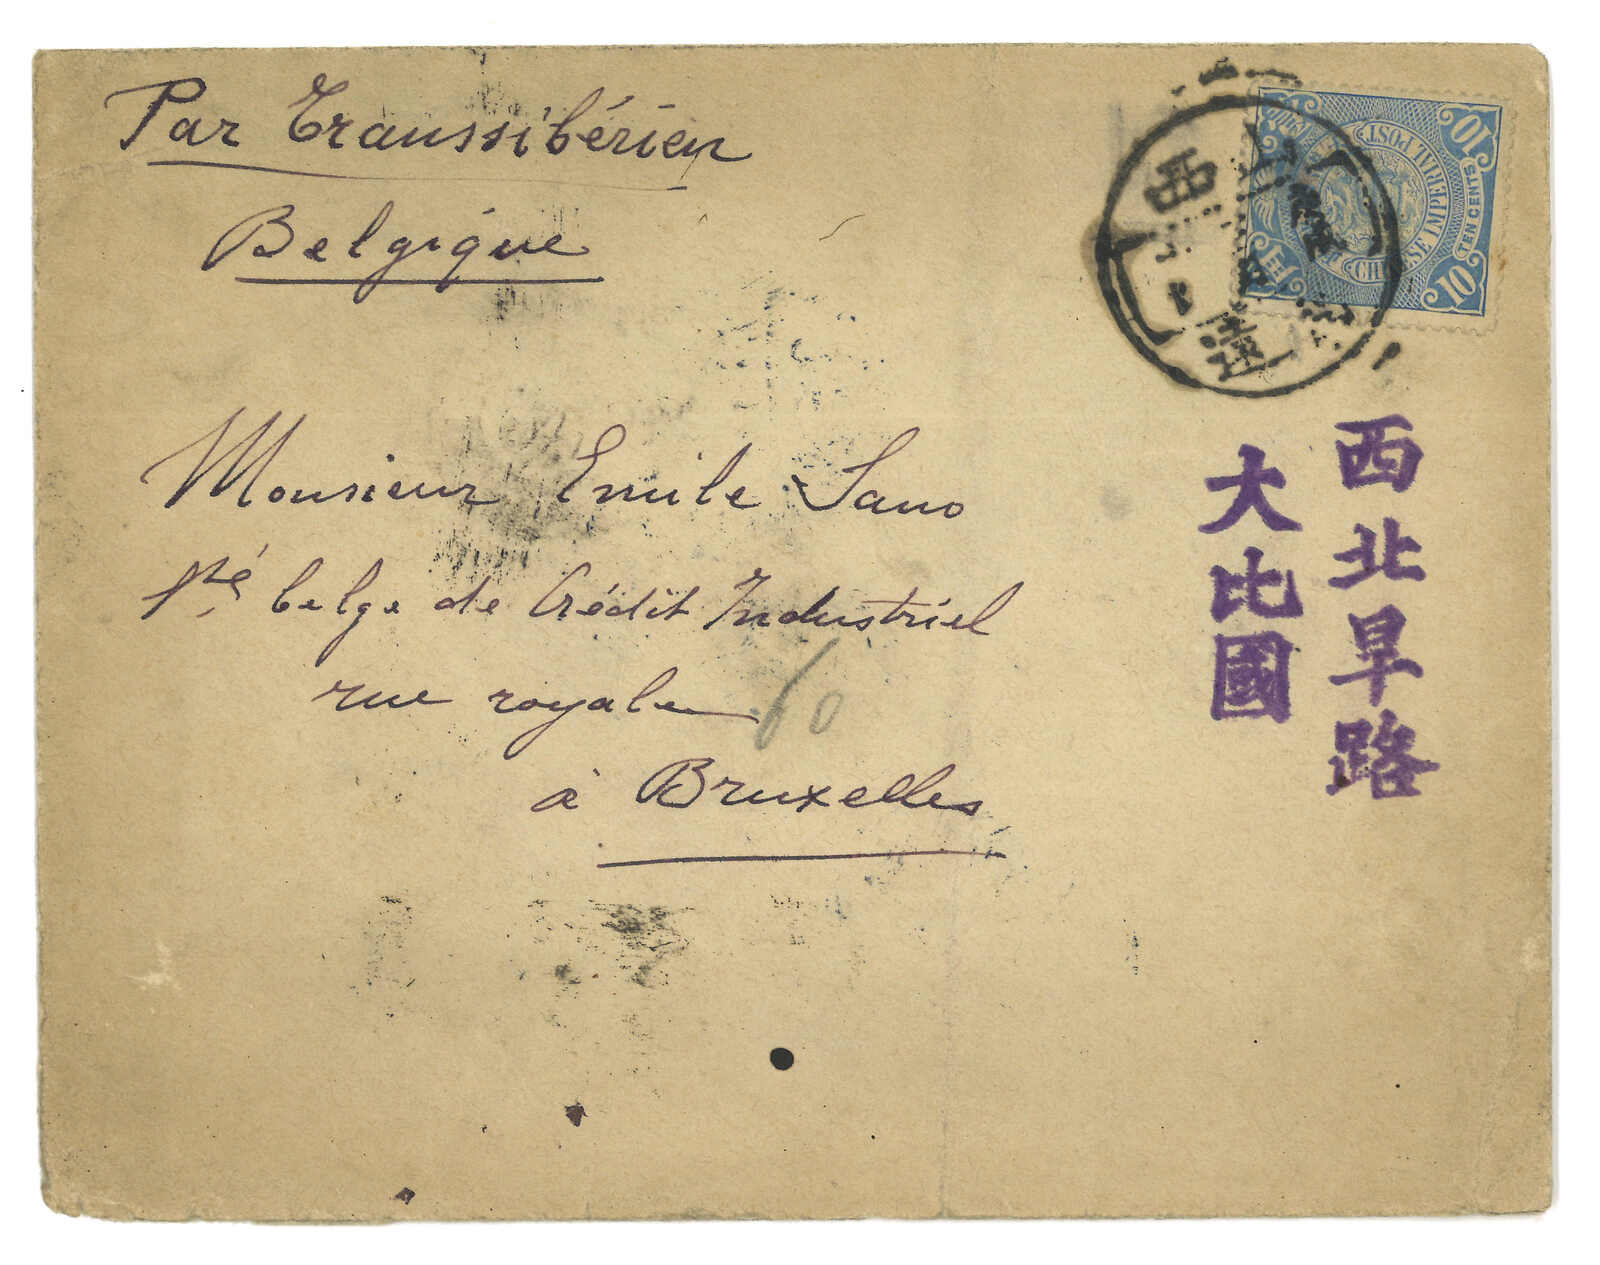 Par Transsibérien
Belgique
Monsieur Emile Sano
Sté belge de Crédit Industriel
rue royale
à Bruxelles
60
西北旱路
大比國
CHINESE IMPERIAL POST
TEN CENTS
10
10